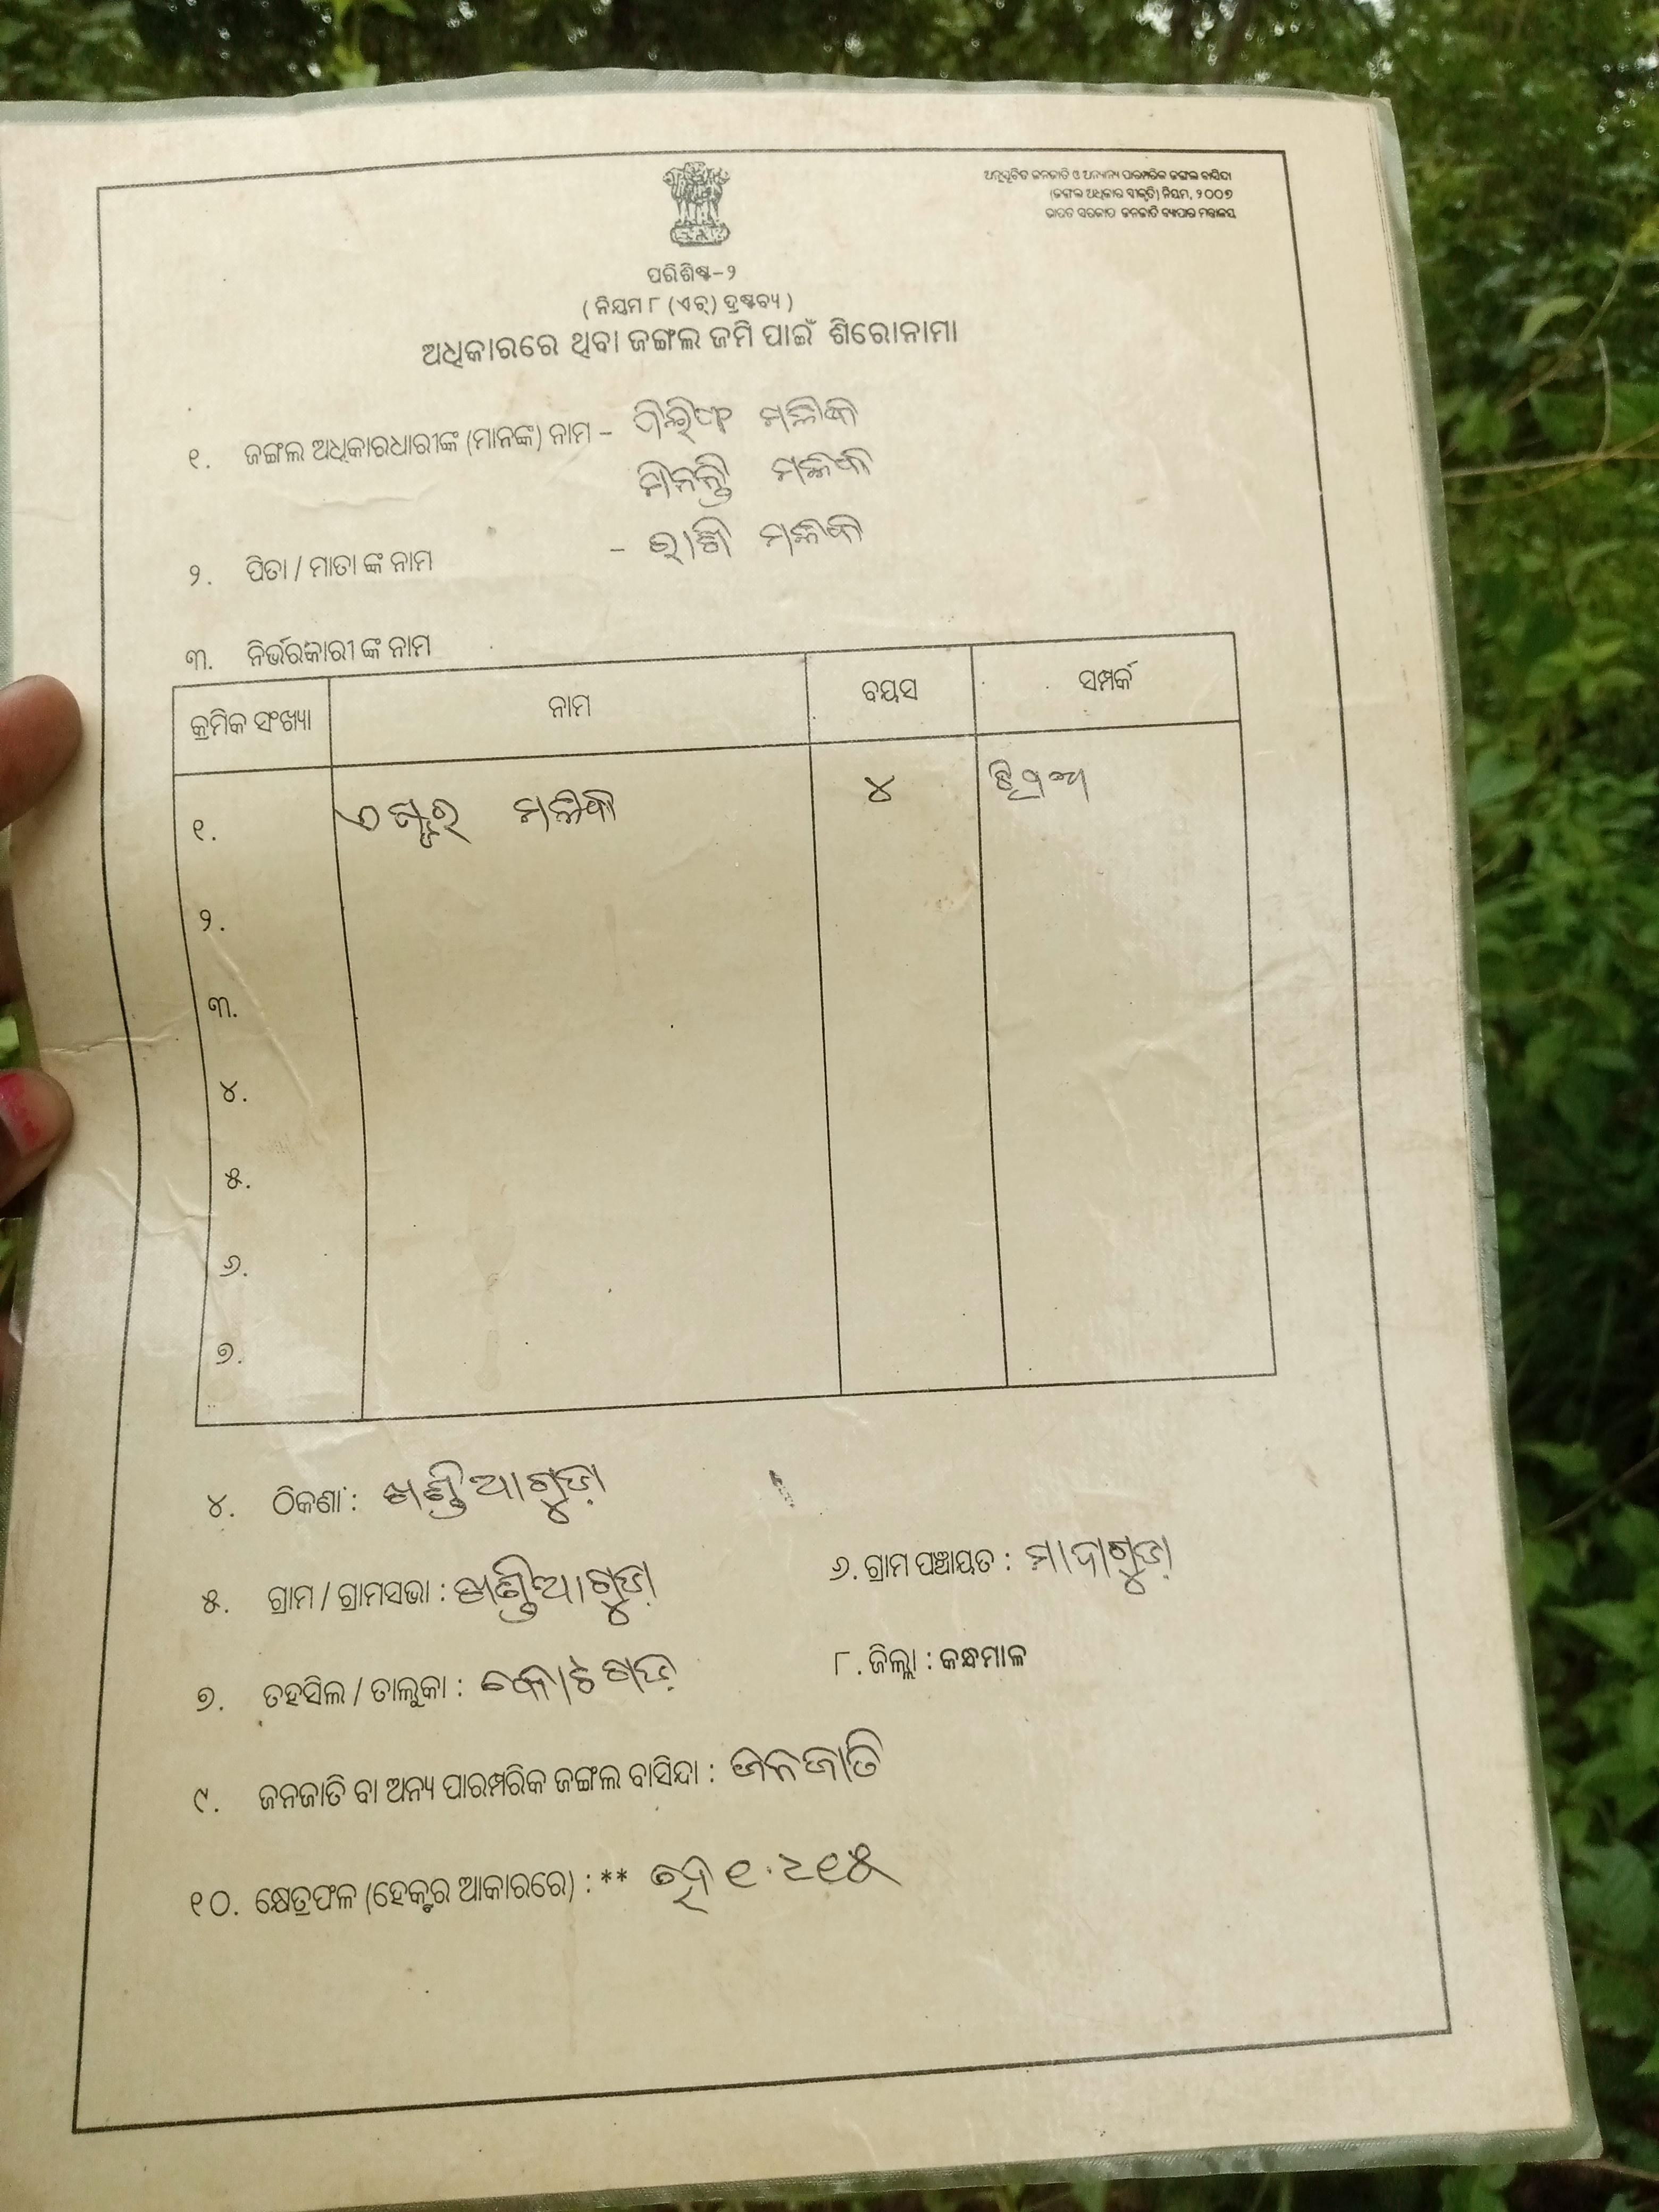 ଅନୁସୂଚିତ ଜନଜାତି ଓ ଅନ୍ୟାନ୍ୟ ପାରମ୍ପରିକ ଜଙ୍ଗଲ ବାସିନ୍ଦା
(ଜଙ୍ଗଲ ଅଧିକାର ସ୍ୱୀକୃତି) ନିୟମ, ୨୦୦୭
ଭାରତ ସରକାର ଜନଜାତି ବ୍ୟାପାର ମନ୍ତ୍ରାଳୟ
ପରିଶିଷ୍ଟ-୨
( ନିୟମ ୮ (ଏଚ୍) ଦ୍ରଷ୍ଟବ୍ୟ )
ଅଧିକାରରେ ଥିବା ଜଙ୍ଗଲ ଜମି ପାଇଁ ଶିରୋନାମା
୧. ଜଙ୍ଗଲ ଅଧିକାରଧାରୀଙ୍କ (ମାନଙ୍କ) ନାମ - ମଲିକ
ମିନତି ମଲିକ
୨. ପିତା / ମାତା ଙ୍କ ନାମ - ମଲିକ
୩. ନିର୍ଭରକାରୀ ଙ୍କ ନାମ
କ୍ରମିକ ସଂଖ୍ୟା ନାମ ବୟସ ସମ୍ପର୍କ
୧. ମଲିକ ୪
୨.
୩.
୪.
୫.
୬.
୭.
୪. ଠିକଣା : ଖଣ୍ଡିଆଗୁଡ଼ା
୫. ଗ୍ରାମ / ଗ୍ରାମସଭା : ଖଣ୍ଡିଆଗୁଡ଼ା
୬. ଗ୍ରାମ ପଞ୍ଚାୟତ : ମାଦାଗୁଡ଼ା
୭. ତହସିଲ / ତାଲୁକା : କୋଟଗଡ଼
୮. ଜିଲ୍ଲା : କନ୍ଧମାଳ
୯. ଜନଜାତି ବା ଅନ୍ୟ ପାରମ୍ପରିକ ଜଙ୍ଗଲ ବାସିନ୍ଦା : ଜନଜାତି
୧୦. କ୍ଷେତ୍ରଫଳ (ହେକ୍ଟର ଆକାରରେ) : ** ୧.୨୧୫